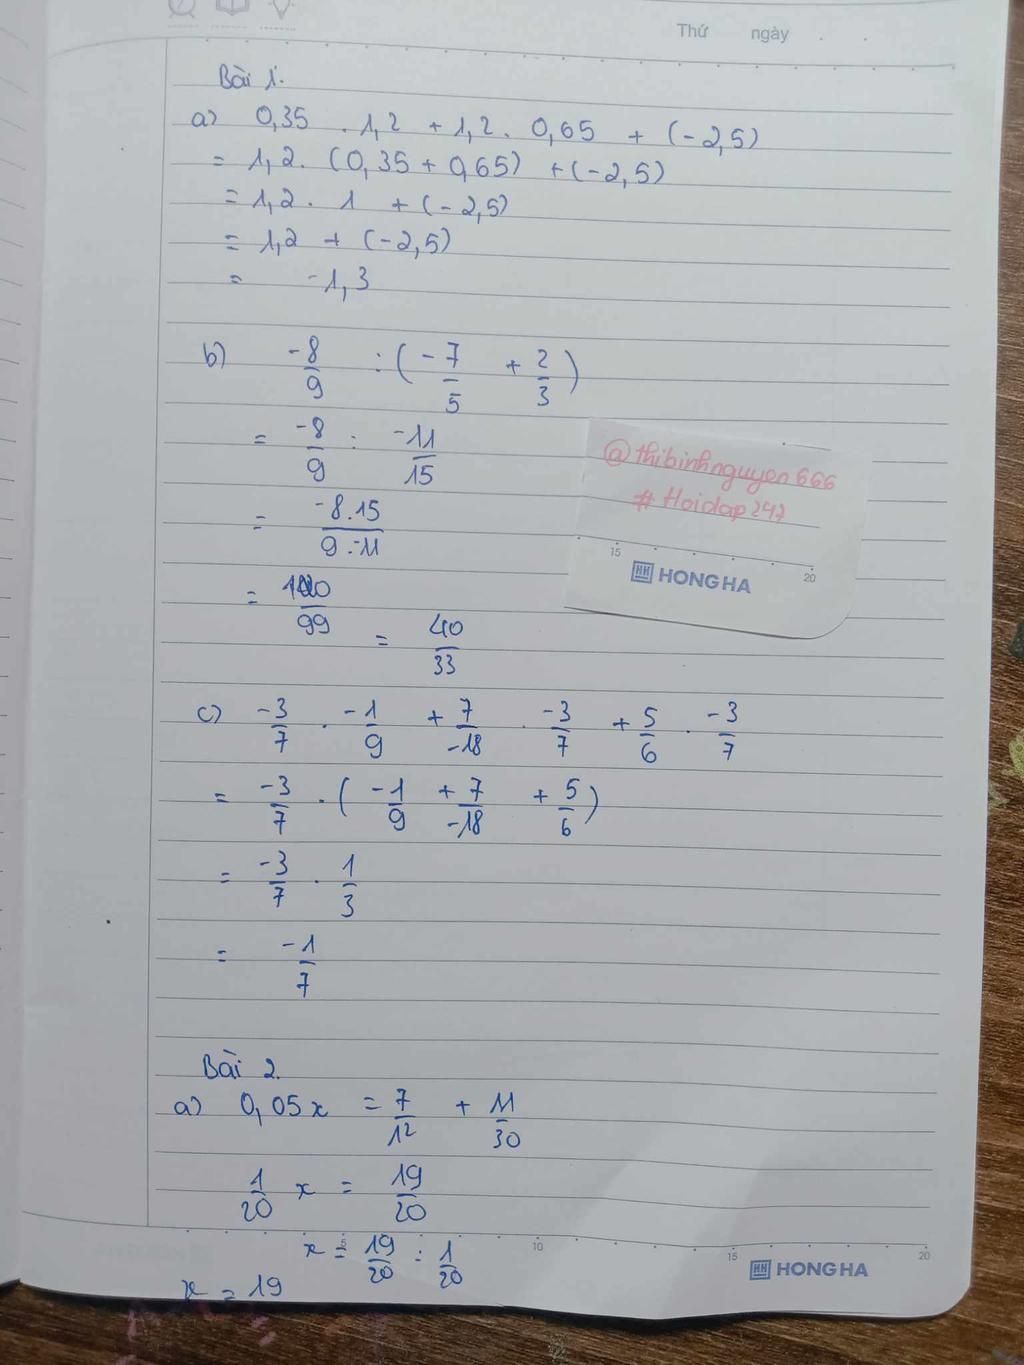 Thứ ngày . .
Bài 1.
a) 0,35 . 1,2 + 1,2 . 0,65 + (-2,5)
= 1,2 . (0,35 + 0,65) + (-2,5)
= 1,2 . 1 + (-2,5)
= 1,2 + (-2,5)
= -1,3
b) -8/9 : (-7/5 + 2/3)
= -8/9 : -11/15
= -8.15/9.-11
= 120/99 = 40/33
@thibinhnguyen666
#Hoidap247
15 20
HH HONG HA
c) -3/7 . -1/9 + 7/-18 . -3/7 + 5/6 . -3/7
= -3/7 . (-1/9 + 7/-18 + 5/6)
= -3/7 . 1/3
= -1/7
Bài 2.
a) 0,05x = 7/12 + 11/30
1/20 x = 19/20
x = 19/20 : 1/20
x = 19
5 10 15 20
HH HONG HA